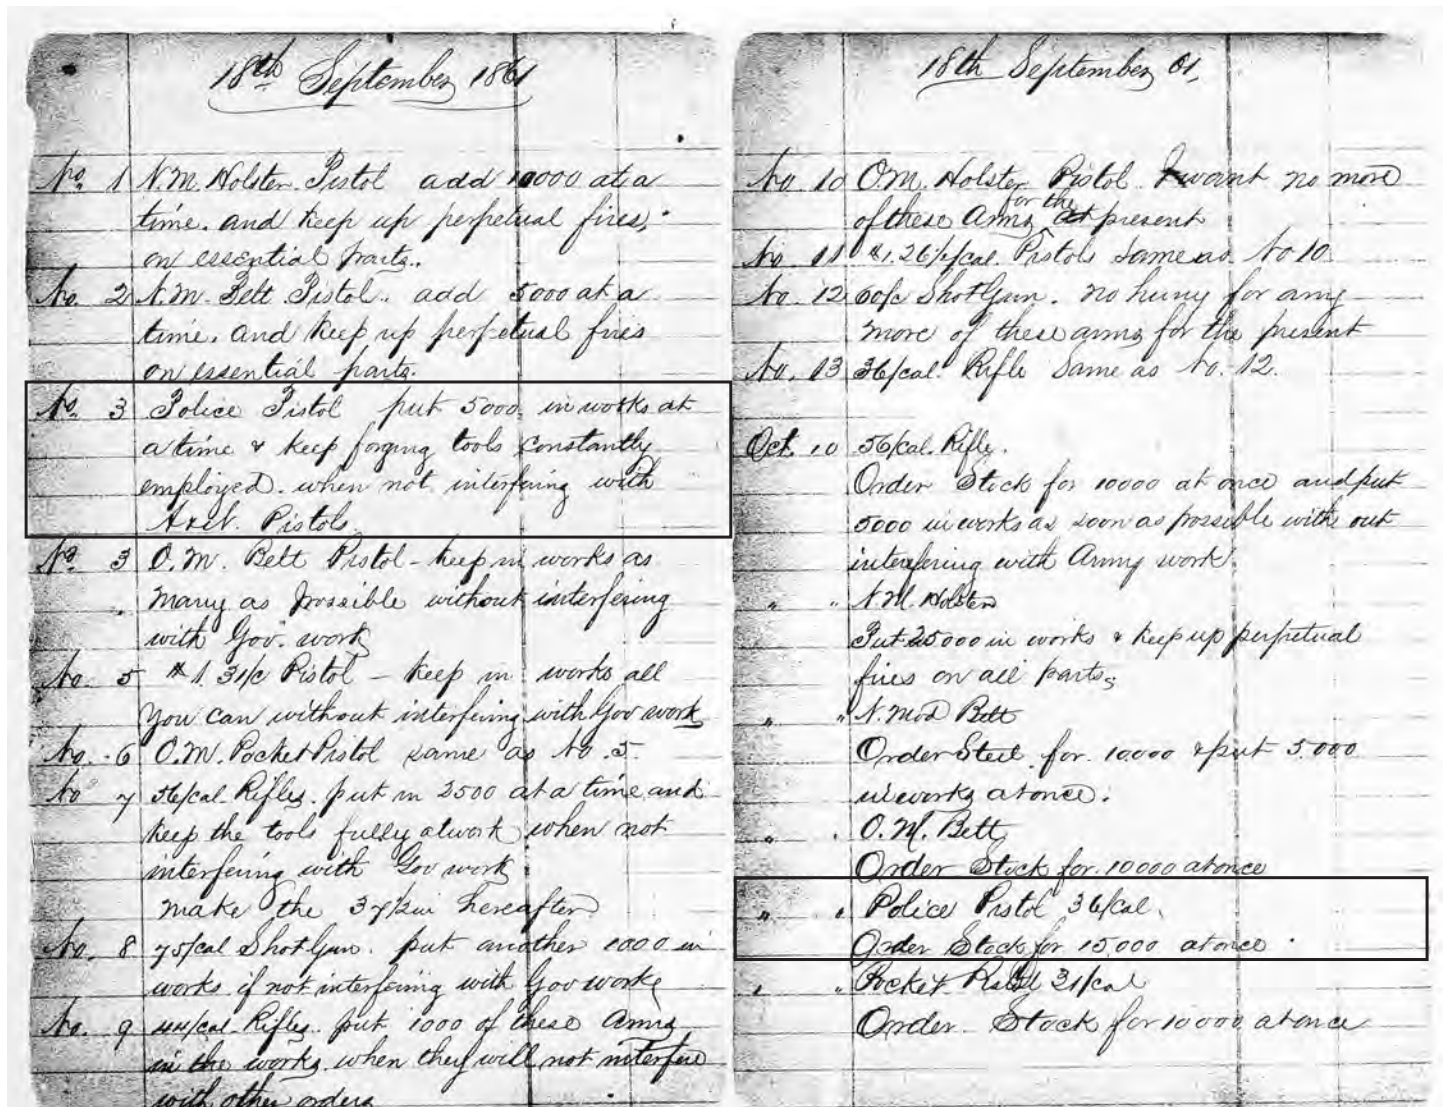 18th September 1861
No. 1 N.M. Holster Pistol add 10000 at a
time. and keep up perpetual fires,
on essential parts.
No. 2 N.M. Belt Pistol. add 5000 at a
time. and keep up perpetual fires
on essential parts.
No. 3 Police Pistol put 5000 in works at
a time & keep forging tools constantly
employed. when not interfering with
Pistols.
No. 3 O.M. Belt Pistol - keep in works as
many as possible without interfering
with Gov. work
No. 5 #1. 31/c Pistol - keep in works all
you can without interfering with Gov work
No. 6 O.M. Pocket Pistol same as No. 5
No 7 56/cal. Rifles. put in 2500 at a time and
keep the tools fully at work when not
interfering with Gov work.
make the 37½ in hereafter
No. 8 75/cal Shot Gun. put another 1000 in
works if not interfering with Gov work
No. 9 44/cal Rifles. put 1000 of these Arms
in the works when they will not interfere
with other orders
18th September 61,
No 10 O.M. Holster Pistol. I want no more
of these Arms for the present
No 11 #1. 26½/cal. Pistols same as No 10
No. 12 60/c Shot Gun. no hurry for any
more of these arms for the present
No. 13 36/cal. Rifle Same as No. 12.
Oct. 10 56/cal. Rifle.
Order Stock for 10000 at once and put
5000 in works as soon as possible with out
interfering with Army work.
" " N.M. Holster
Put 25000 in works & keep up perpetual
fires on all parts,
" " N. Mod Belt
Order Steel for 10000 & put 5.000
in works at once.
" " O.M. Belt
Order Stock for 10000 at once
" " Police Pistol 36/cal.
Order Stock for 15,000 at once.
" " Pocket Pistol 31/cal
Order Stock for 10000 at once